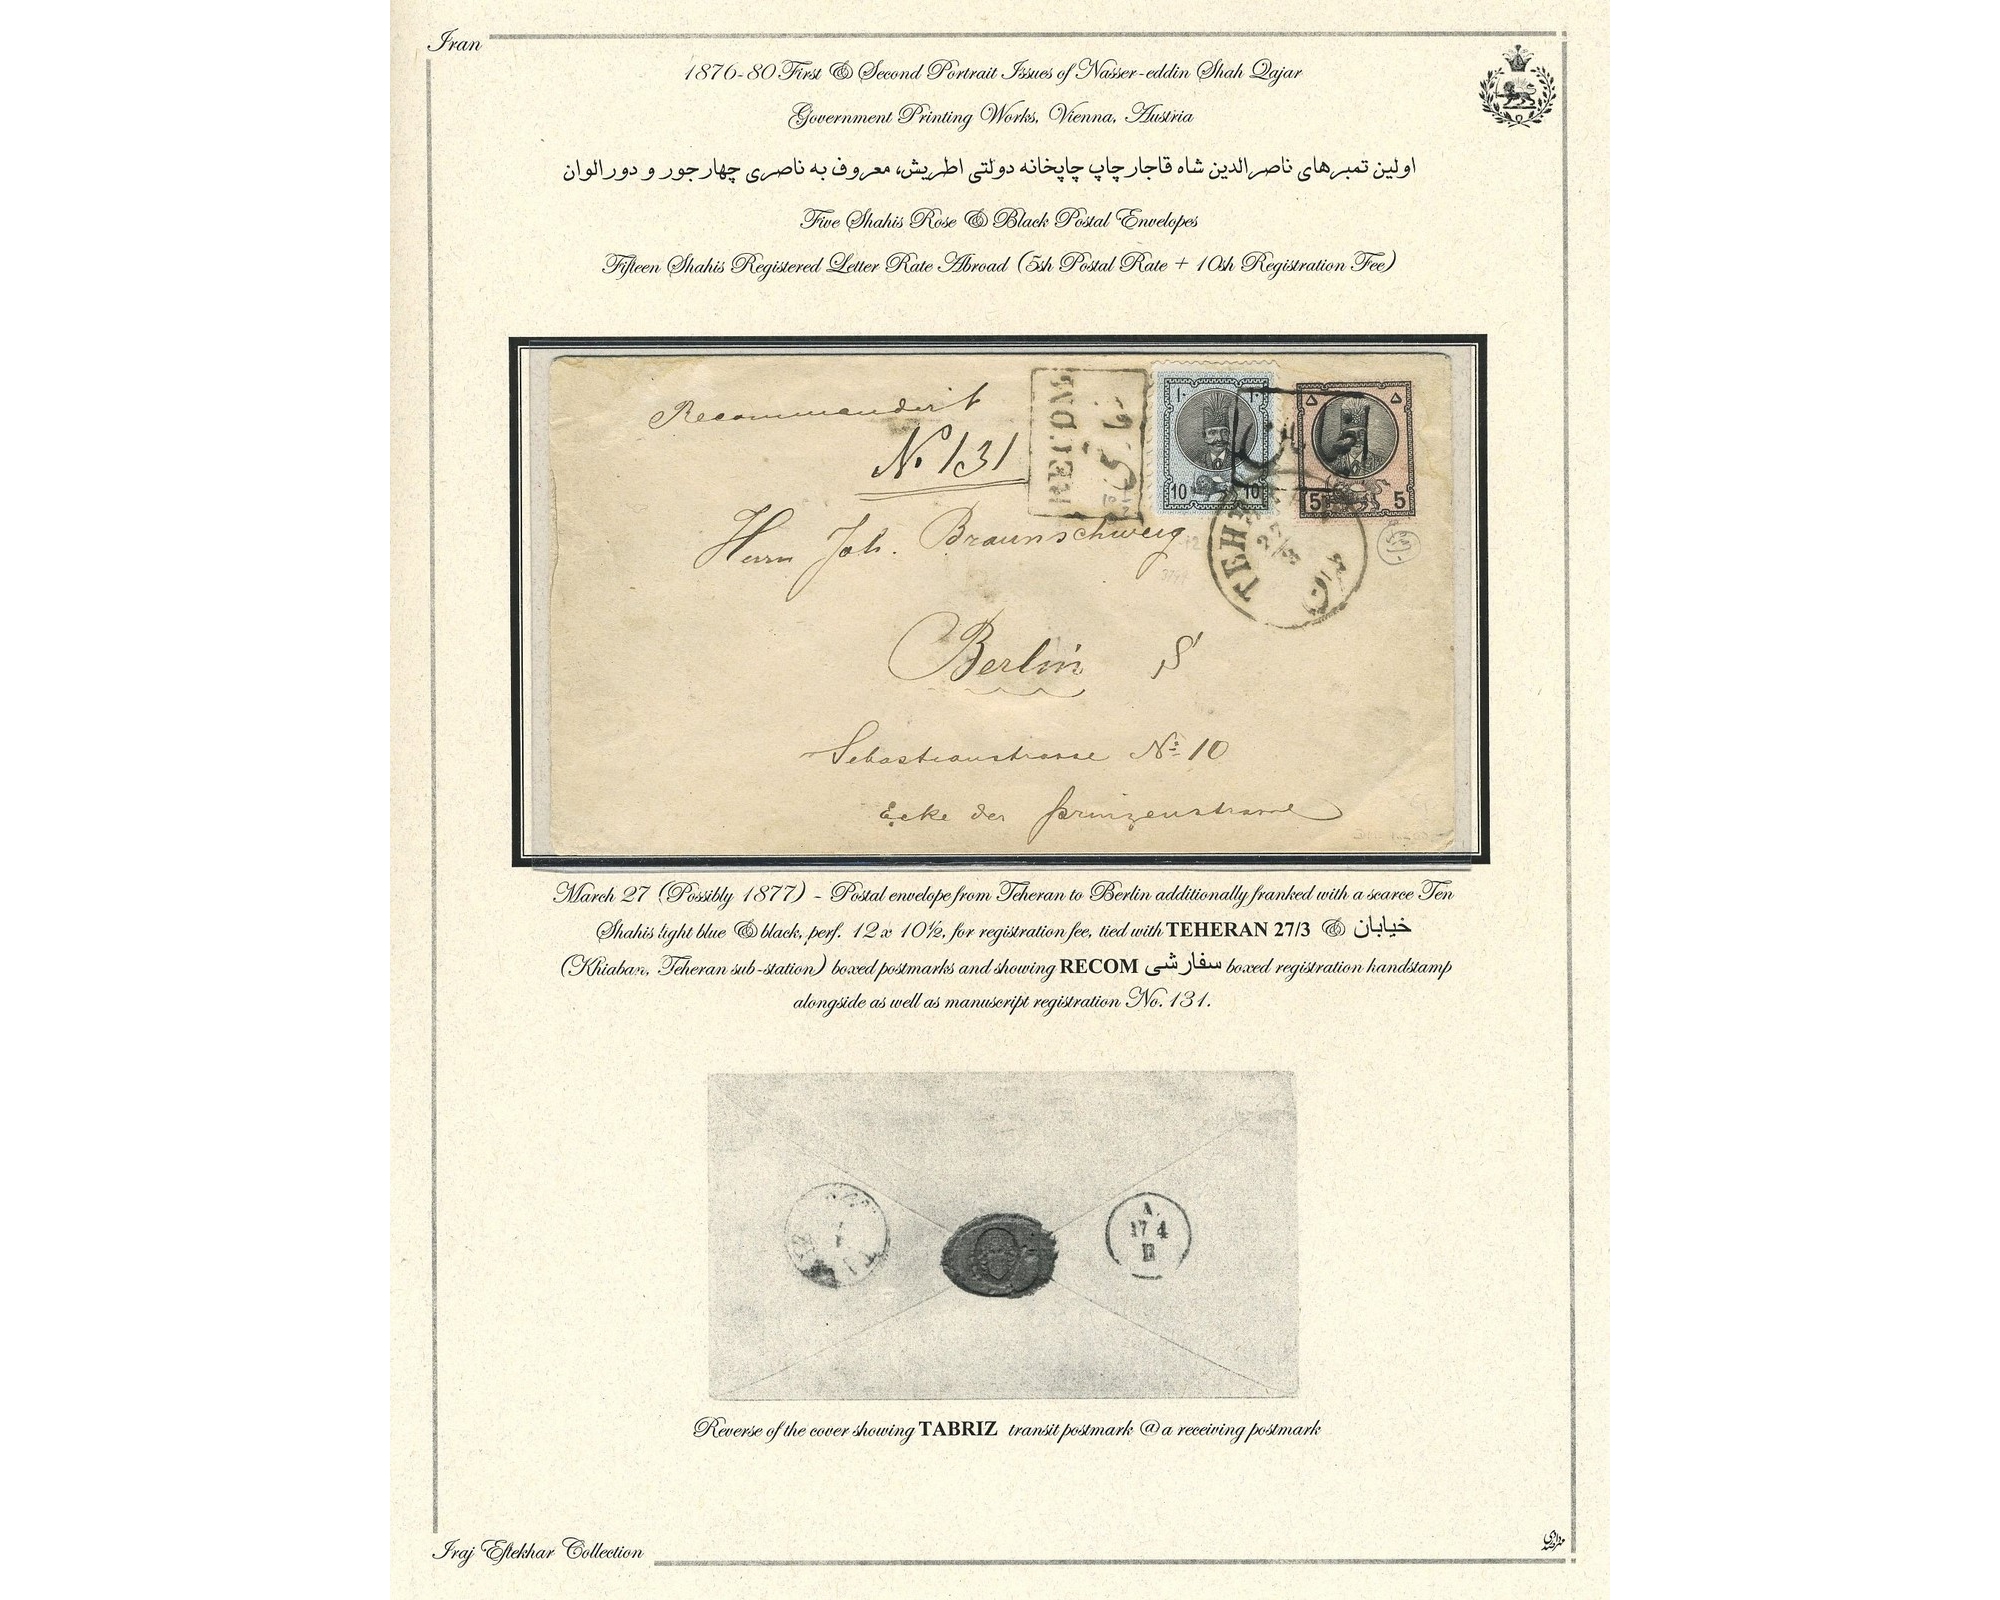 Iran
1876-80 First & Second Portrait Issues of Nasser-eddin Shah Qajar
Government Printing Works, Vienna, Austria
اولین تمبرهای ناصرالدین شاه قاجار چاپ چاپخانه دولتی اطریش، معروف به ناصری چهار جور و دور الوان
Five Shahis Rose & Black Postal Envelopes
Fifteen Shahis Registered Letter Rate Abroad (5sh Postal Rate + 10sh Registration Fee)
Recommandirt
No 131
۱۰ ۱۰
10 10
۵ ۵
5 5
TEHE
27/3
Herrn Joh. Braunschweig
Berlin S
Sebastianstrasse No 10
Ecke der Prinzenstrasse
March 27 (Possibly 1877) - Postal envelope from Teheran to Berlin additionally franked with a scarce Ten
Shahis light blue & black, perf. 12 x 10½, for registration fee, tied with TEHERAN 27/3 & خیابان
(Khiaban, Teheran sub-station) boxed postmarks and showing RECOM سفارشی boxed registration handstamp
alongside as well as manuscript registration No. 131.
17 4
Reverse of the cover showing TABRIZ transit postmark @ a receiving postmark
Iraj Eftekhar Collection